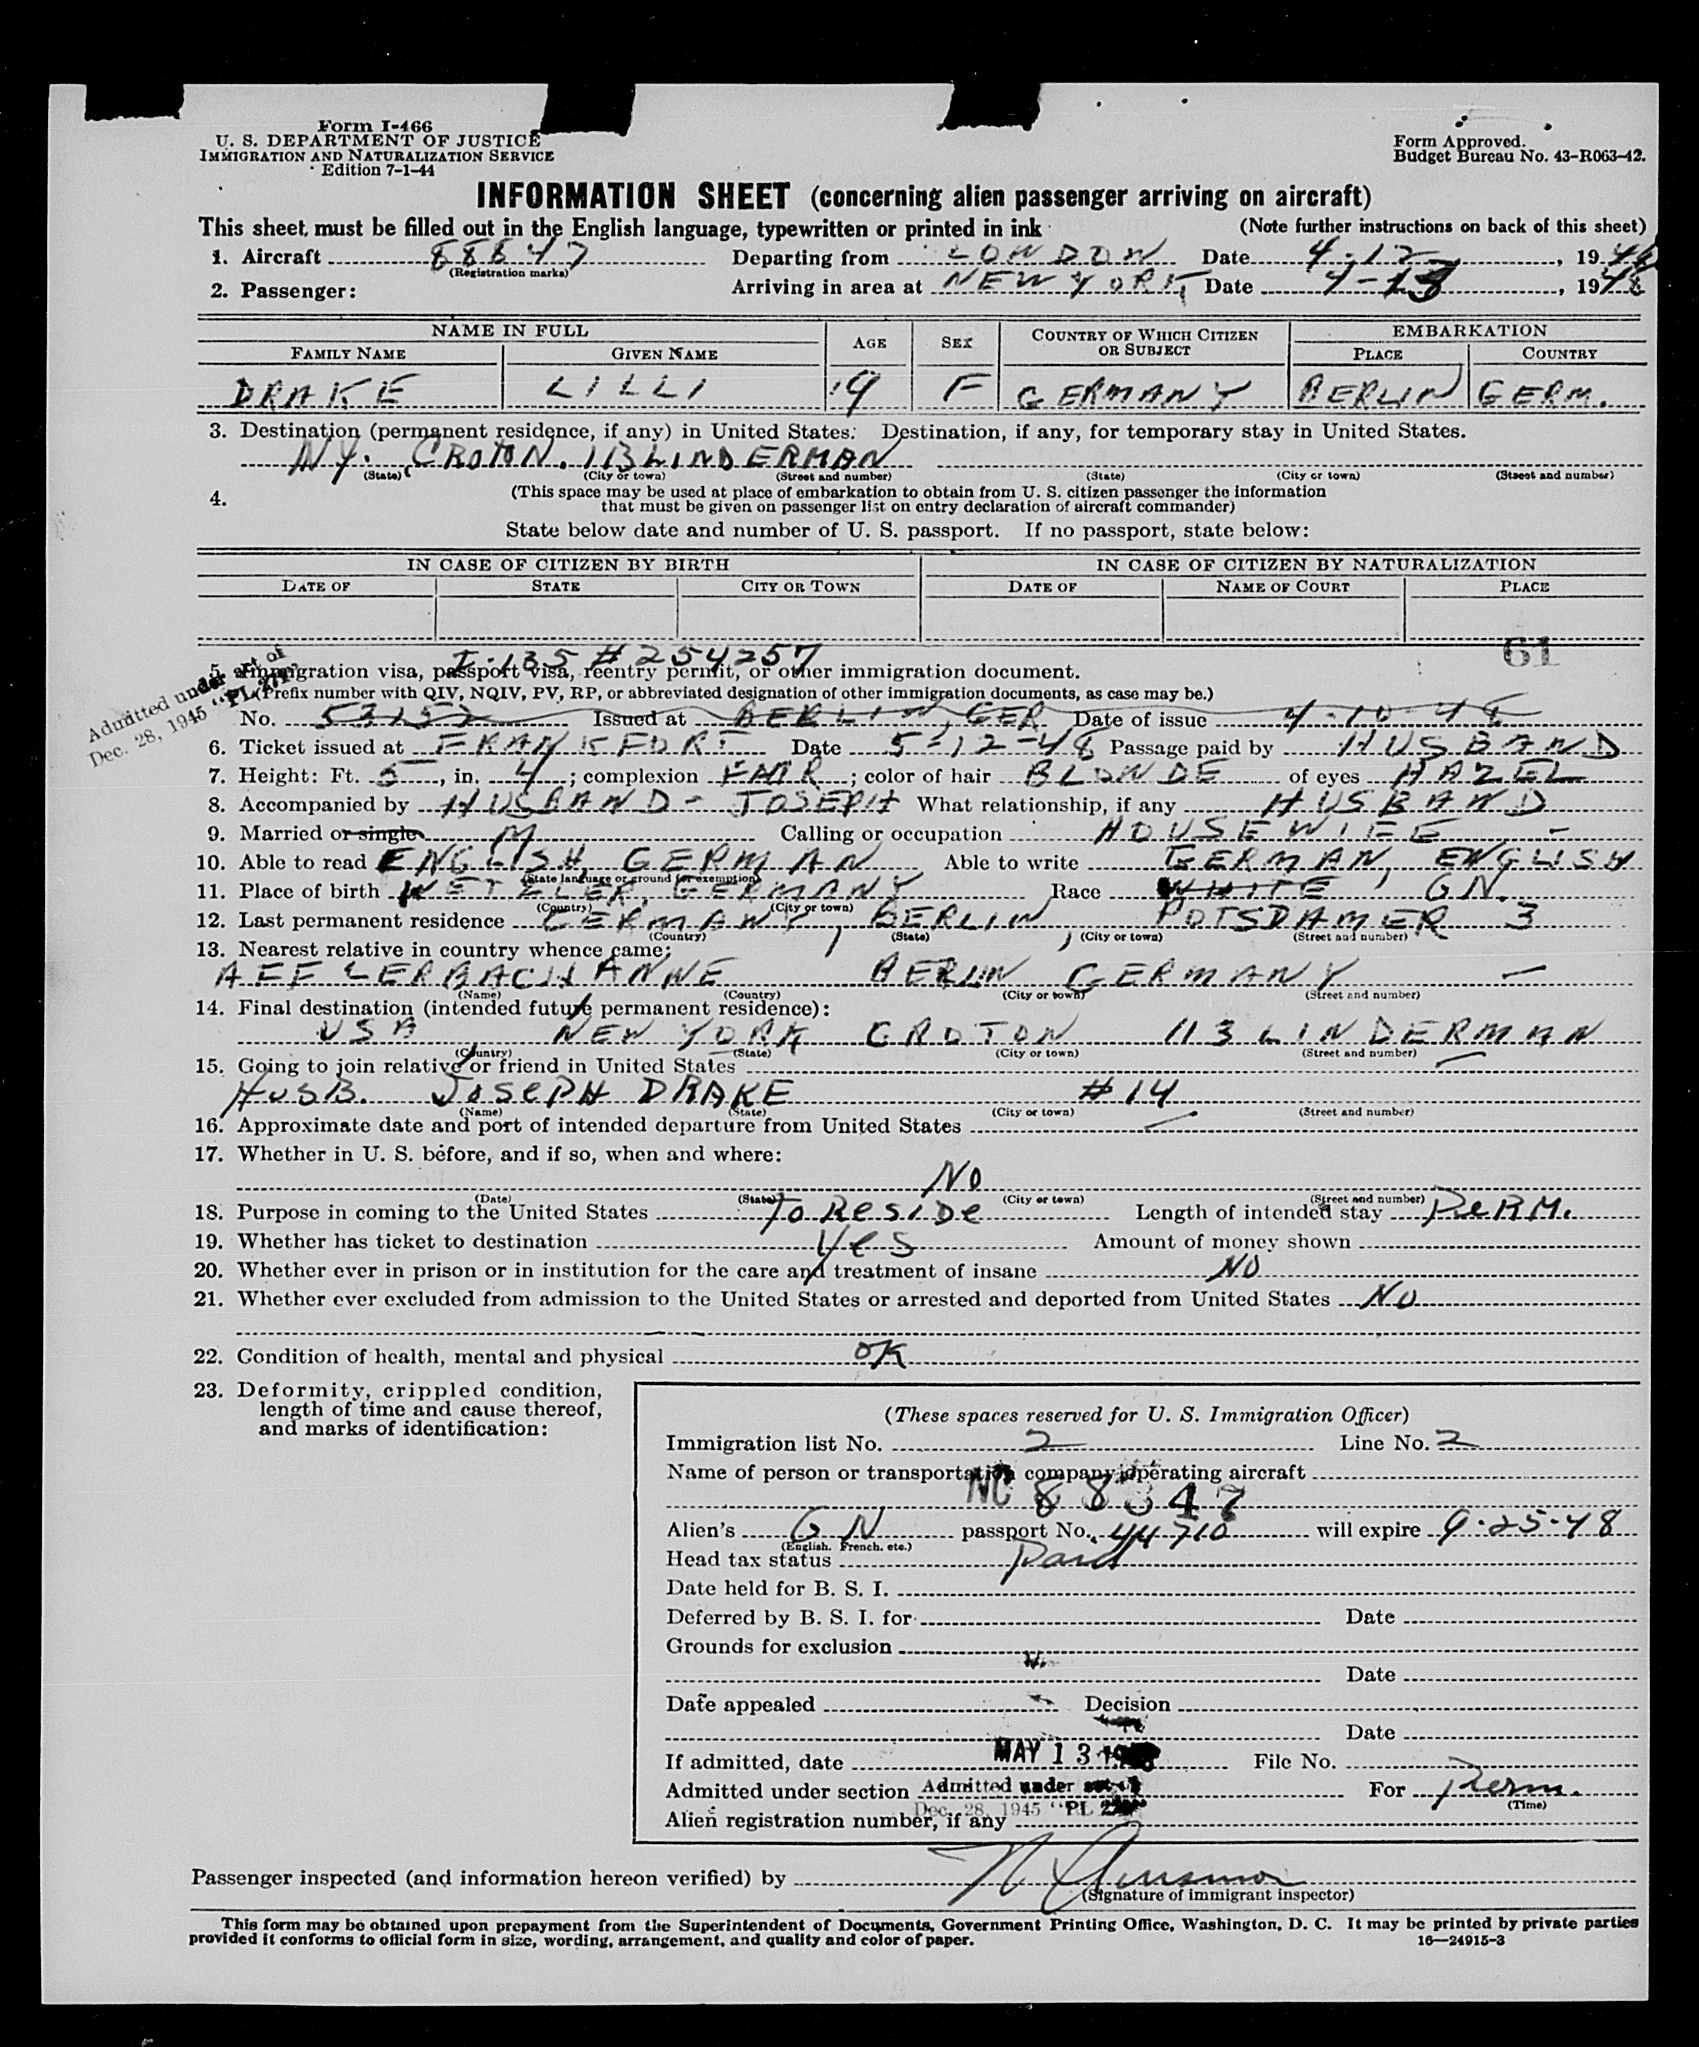 Form I-466
U. S. DEPARTMENT OF JUSTICE
IMMIGRATION AND NATURALIZATION SERVICE
Edition 7-1-44
Form Approved.
Budget Bureau No. 43-R063-42.
INFORMATION SHEET (concerning alien passenger arriving on aircraft)
This sheet must be filled out in the English language, typewritten or printed in ink (Note further instructions on back of this sheet)
1. Aircraft 88847 Departing from LONDON Date 4-12, 1948
(Registration marks)
2. Passenger: Arriving in area at NEW YORK Date 4-13, 1948
NAME IN FULL AGE SEX COUNTRY OF WHICH CITIZEN OR SUBJECT EMBARKATION
FAMILY NAME GIVEN NAME PLACE COUNTRY
DRAKE LILLI 19 F GERMANY BERLIN GERM.
3. Destination (permanent residence, if any) in United States: Destination, if any, for temporary stay in United States.
NY. CROTON. 113 LINDERMAN
(State) (City or town) (Street and number) (State) (City or town) (Street and number)
4. (This space may be used at place of embarkation to obtain from U. S. citizen passenger the information
that must be given on passenger list on entry declaration of aircraft commander)
State below date and number of U. S. passport. If no passport, state below:
IN CASE OF CITIZEN BY BIRTH IN CASE OF CITIZEN BY NATURALIZATION
DATE OF STATE CITY OR TOWN DATE OF NAME OF COURT PLACE
61
I-135 # 254257
5. Immigration visa, passport visa, reentry permit, or other immigration document.
(Prefix number with QIV, NQIV, PV, RP, or abbreviated designation of other immigration documents, as case may be.)
Admitted under act of
Dec. 28, 1945 "PL 271"
No. 53152 Issued at BERLIN, GER Date of issue 4-10-48
6. Ticket issued at FRANKFORT Date 5-12-48 Passage paid by HUSBAND
7. Height: Ft. 5, in. 4; complexion FAIR; color of hair BLONDE of eyes HAZEL
8. Accompanied by HUSBAND - JOSEPH What relationship, if any HUSBAND
9. Married or single M Calling or occupation HOUSEWIFE -
10. Able to read ENGLISH, GERMAN Able to write GERMAN, ENGLISH
(State language or ground for exemption)
11. Place of birth WETZLER, GERMANY Race WHITE GN.
(Country) (City or town)
12. Last permanent residence GERMANY, BERLIN, POTSDAMER 3
(Country) (State) (City or town) (Street and number)
13. Nearest relative in country whence came:
AEFLERBACH ANNE BERLIN GERMANY -
(Name) (Country) (City or town) (Street and number)
14. Final destination (intended future permanent residence):
USA NEW YORK CROTON 113 LINDERMAN
(Country) (State) (City or town) (Street and number)
15. Going to join relative or friend in United States
HUSB. JOSEPH DRAKE #14
(Name) (State) (City or town) (Street and number)
16. Approximate date and port of intended departure from United States
17. Whether in U. S. before, and if so, when and where:
NO
(Date) (State) (City or town) (Street and number)
18. Purpose in coming to the United States To Reside Length of intended stay PeRM.
19. Whether has ticket to destination Yes Amount of money shown
20. Whether ever in prison or in institution for the care and treatment of insane NO
21. Whether ever excluded from admission to the United States or arrested and deported from United States NO
22. Condition of health, mental and physical OK
23. Deformity, crippled condition,
length of time and cause thereof,
and marks of identification:
(These spaces reserved for U. S. Immigration Officer)
Immigration list No. 2 Line No. 2
Name of person or transportation company operating aircraft
NC 88847
Alien's GN passport No. 44710 will expire 9-25-48
(English. French. etc.)
Head tax status Paid
Date held for B. S. I.
Deferred by B. S. I. for Date
Grounds for exclusion
Date
Date appealed Decision
Date
If admitted, date MAY 13 File No.
Admitted under section Admitted under act of For Perm.
(Time)
Dec. 28, 1945 "PL
Alien registration number, if any
Passenger inspected (and information hereon verified) by
(Signature of immigrant inspector)
This form may be obtained upon prepayment from the Superintendent of Documents, Government Printing Office, Washington, D. C. It may be printed by private parties
provided it conforms to official form in size, wording, arrangement, and quality and color of paper. 16—24915-3